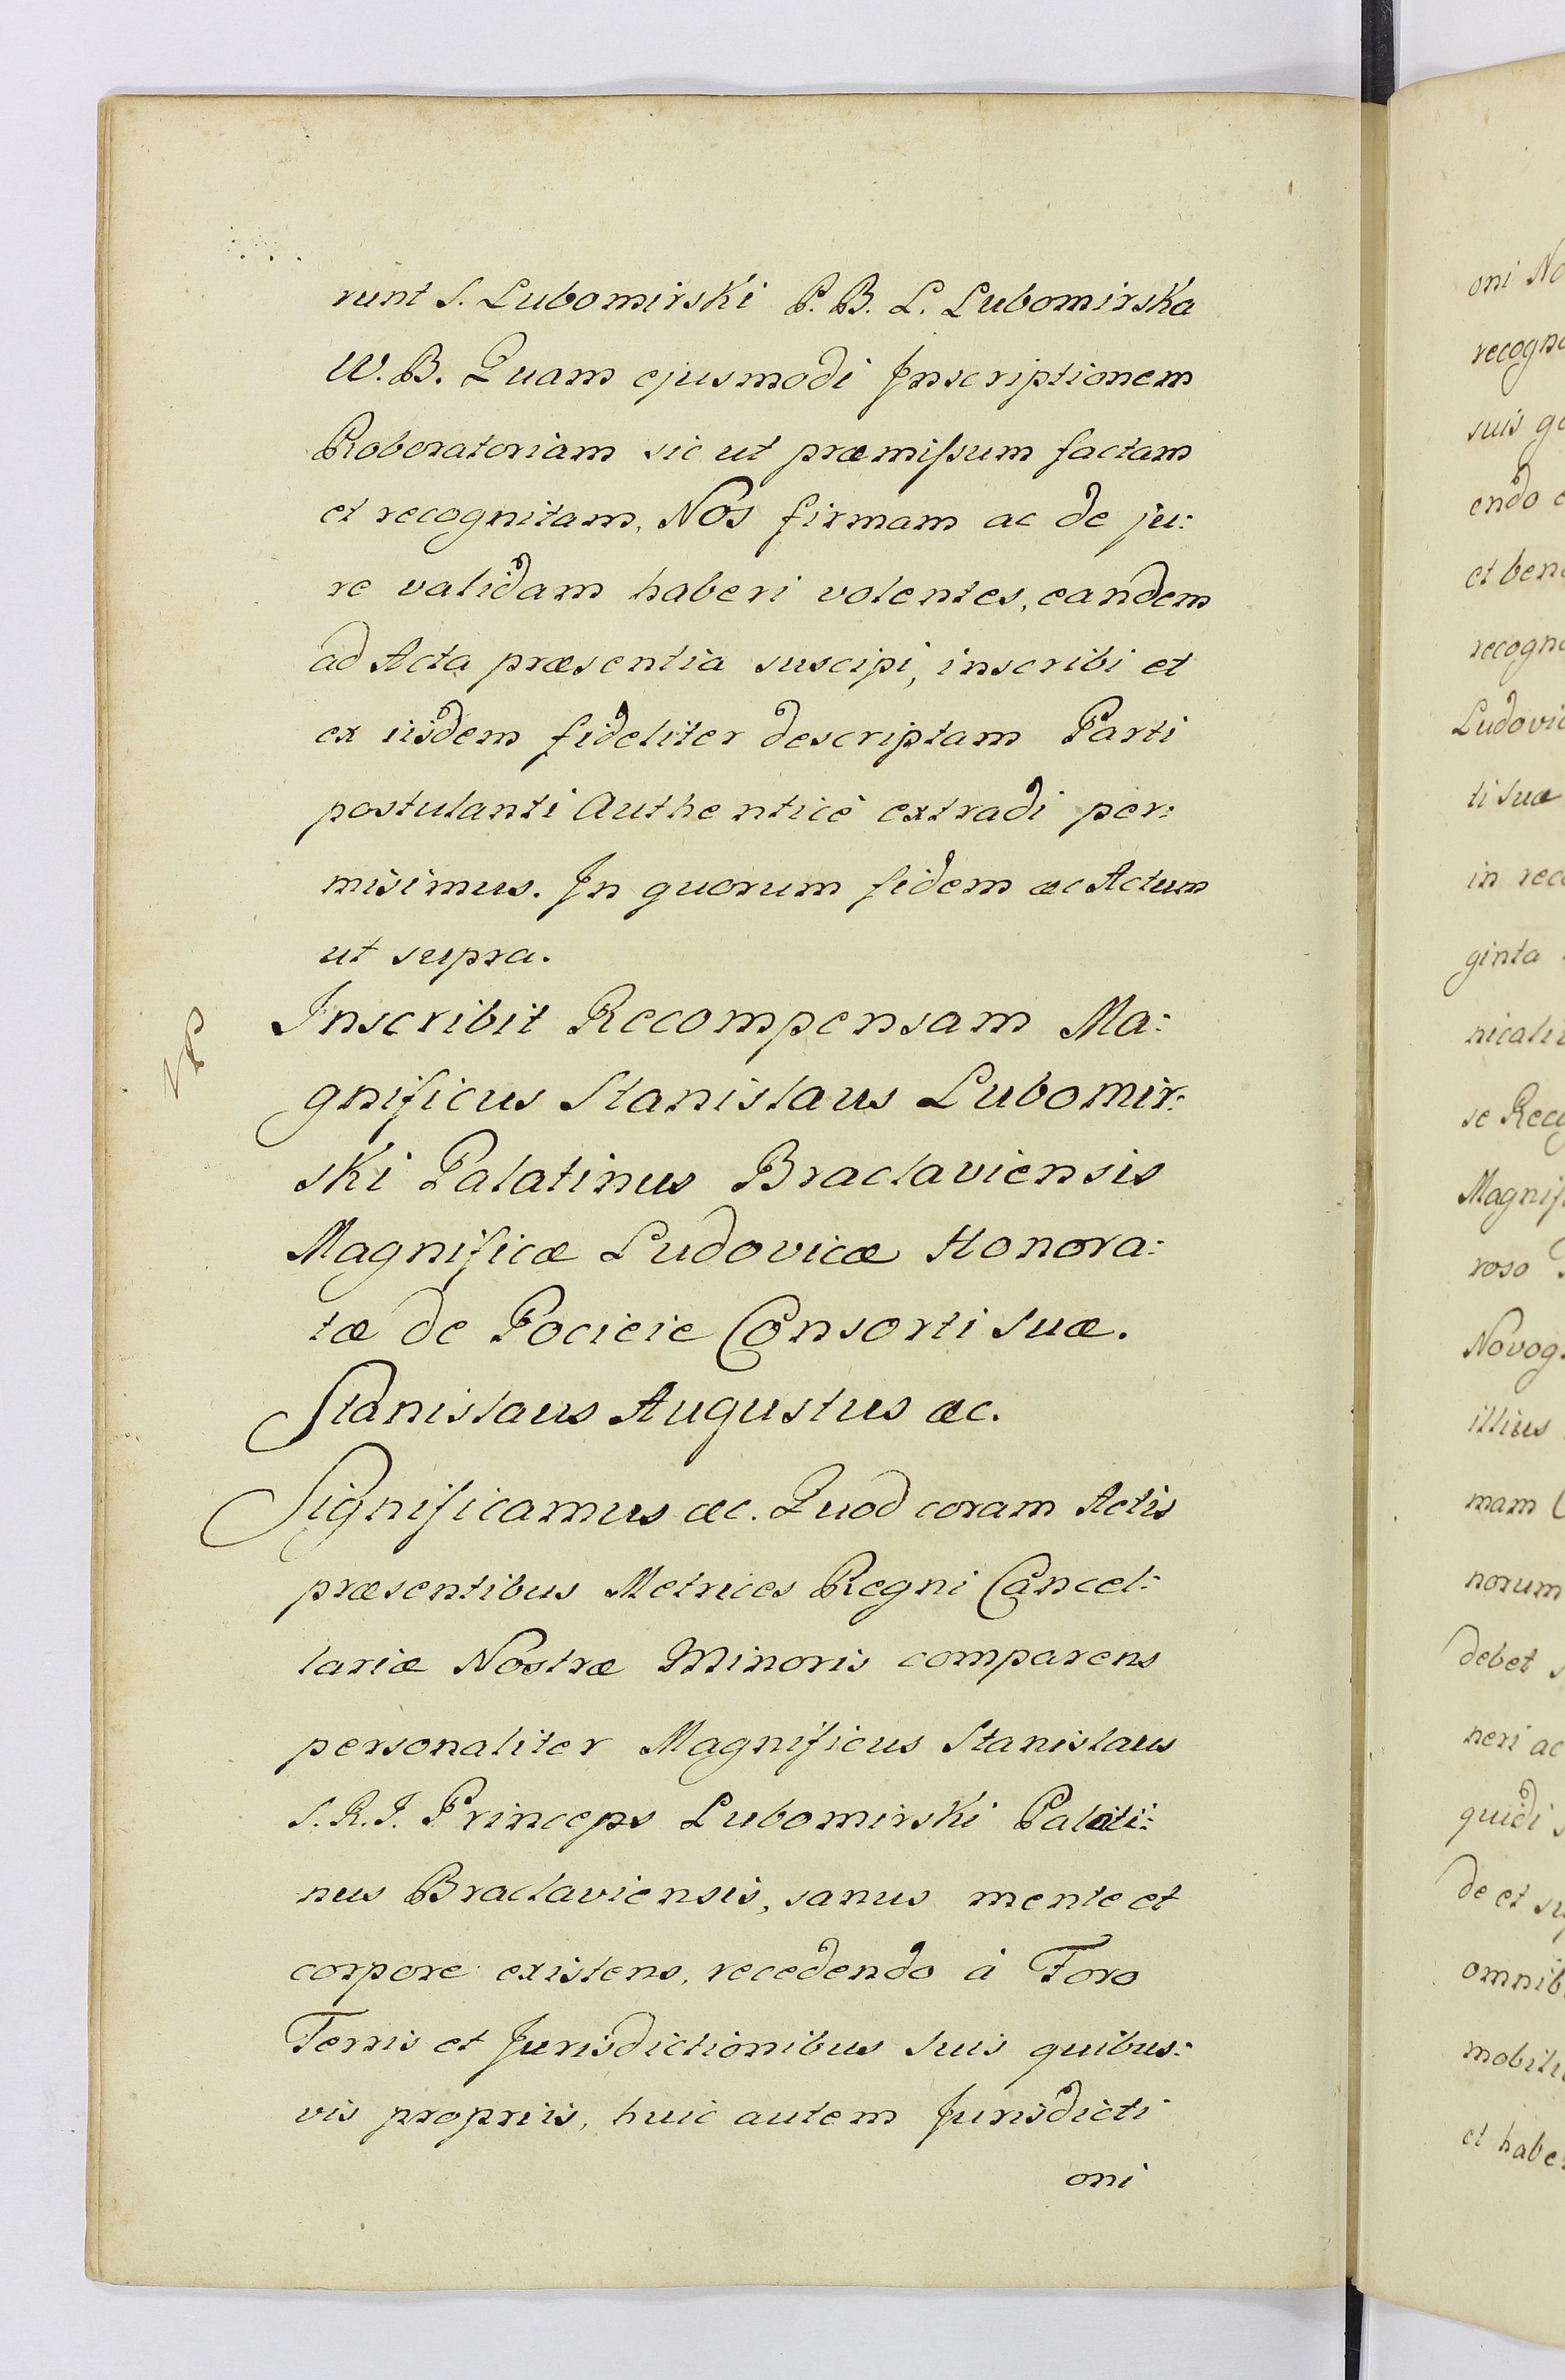 runt S. Lubomirski P. B. L. Lubomirska
W. B. Quam ejusmodi Inscriptionem
Roboratoriam sic ut præmiſsum factam
et recognitam, Nos firmam ac de ju:
re validam haberi volentes, eandem
ad Acta præsentia suscipi, inscribi et
ex iisdem fideliter descriptam Parti
postulanti Authenticè extradi per:
misimus. In quorum fidem æc Actum
ut supra.
Inscribit Recompensam Ma:
gnificus Stanislaus Lubomir:
ski Palatinus Braclaviensis
Magnificæ Ludovicæ Honora:
tæ de Pocieie Consorti suæ.
Stanislaus Augustus æc.
Significamus æc. Quod coram Actis
præsentibus Metrices Regni Cancel:
lariæ Nostræ Minoris comparens
personaliter Magnificus Stanislaus
S. R. I. Princeps Lubomirski Palati:
nus Braclaviensis, sanus mente et
corpore existens, recedendo à Foro
Terris et Jurisdictionibus suis quibus:
vis propriis, huic autem Jurisdicti
oni
oni No
recogn
suis g
endo
et ben
recogn
Ludovic
ti suæ
in rec
ginta
nicali
se Rec
Magnif
roso
Novog
illius
mam
norum
debet
neri ac
quidi
de et su
omnib
mobili
et habe